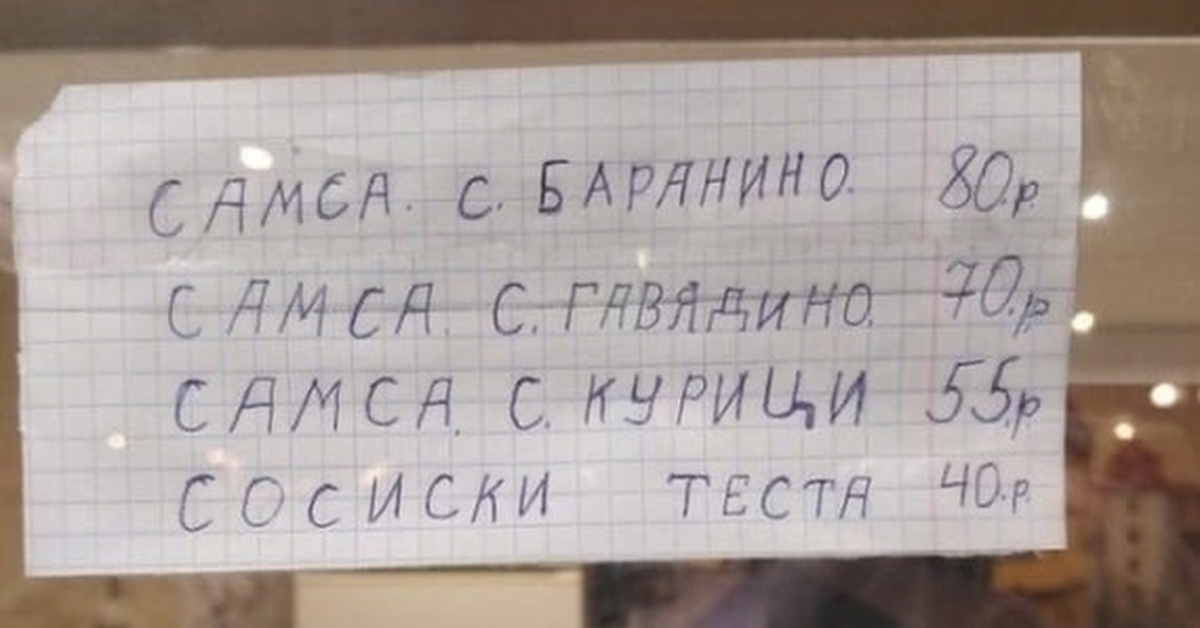 САМСА. С. БАРАНИНО. 80.р.
САМСА. С. ГАВЯДИНО. 70.р.
САМСА. С. КУРИЦИ 55.р
СОСИСКИ ТЕСТА 40.р.